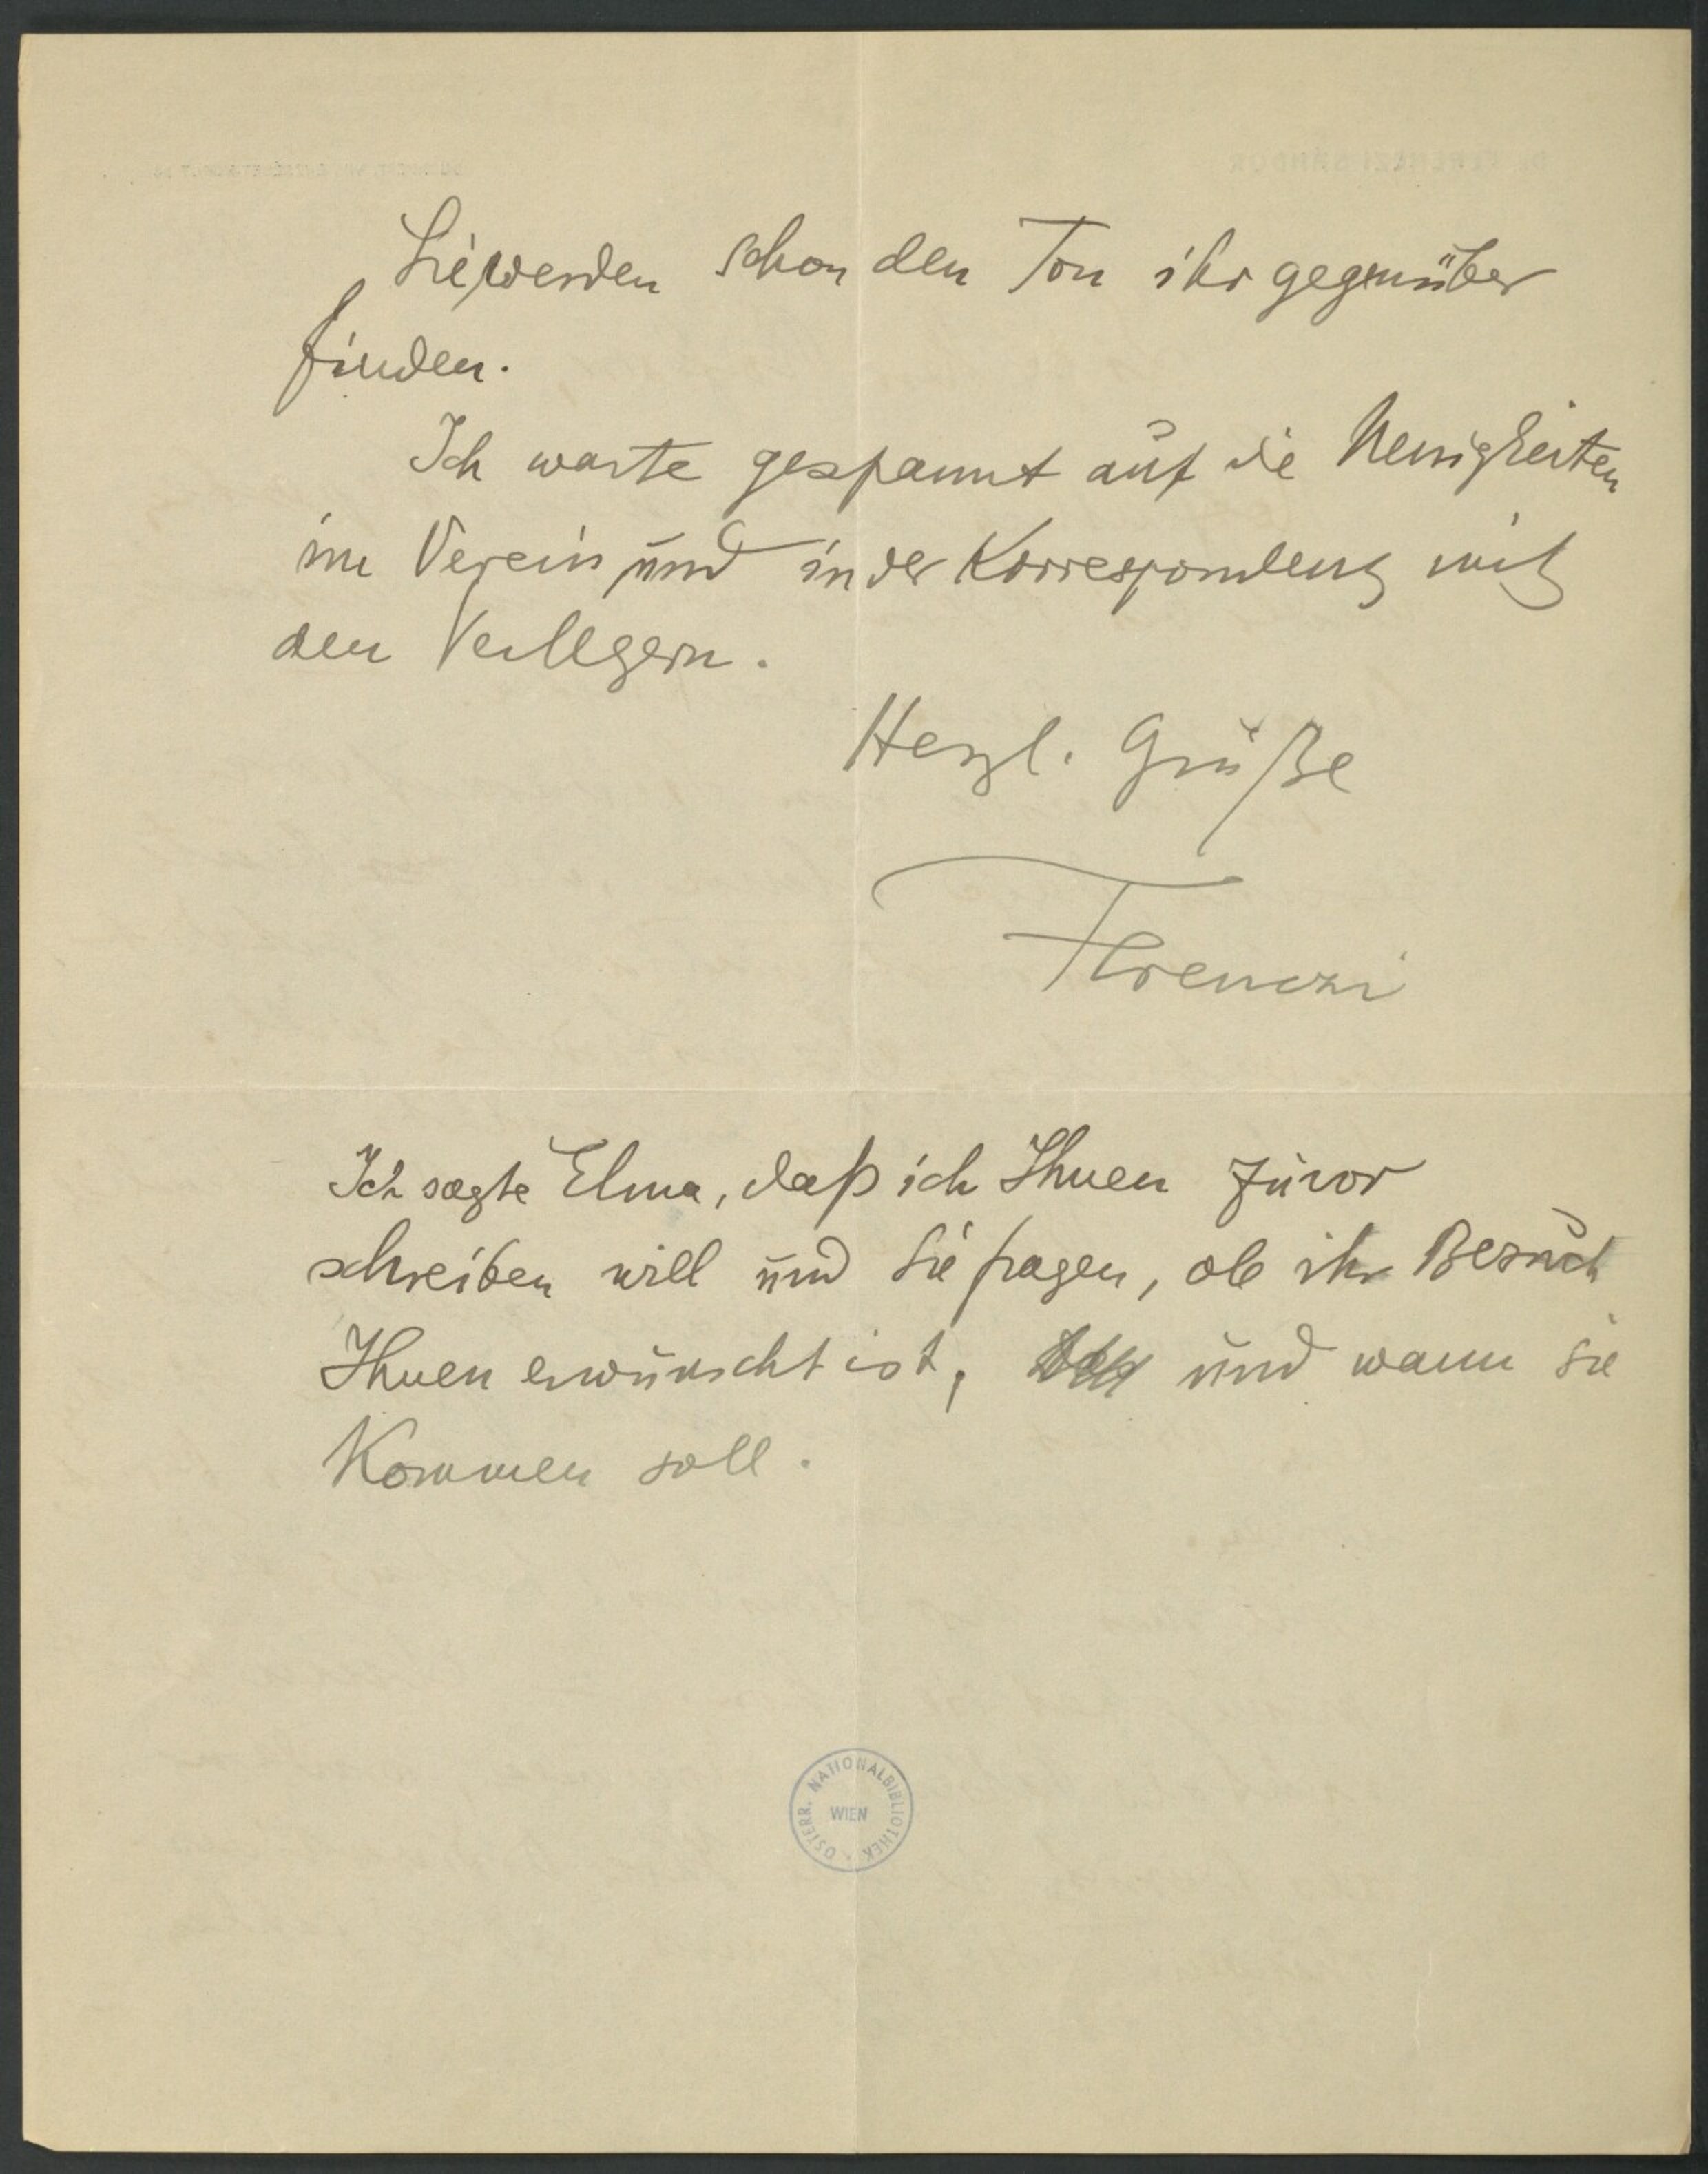 Sie werden schon den Ton ihr gegenüber
finden.
Ich warte gespannt auf die Neuigkeiten
im Verein und in der Korrespondenz mit
den Verlegern.
Herzl. Grüße
Ferenczi
Ich sagte Elma, daß ich Ihnen zuvor
schreiben will und Sie fragen, ob ihr Besuch
Ihnen erwünscht ist, und wann sie
Kommen soll.
ÖSTERR. NATIONALBIBLIOTHEK
WIEN